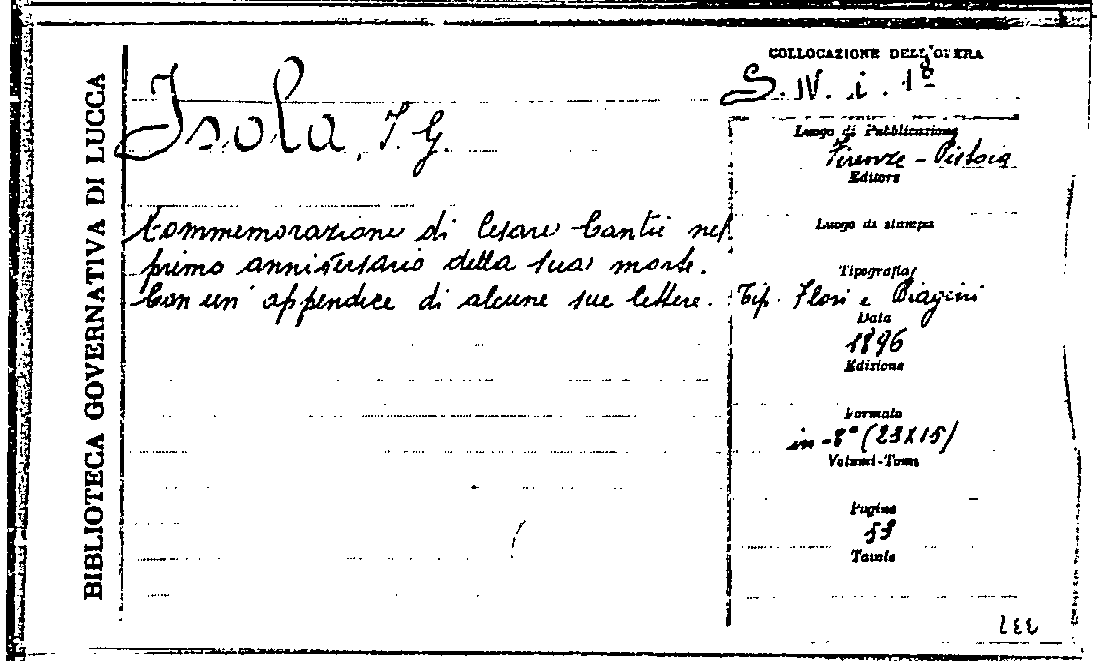 BIBLIOTECA GOVERNATIVA DI LUCCA
Isola, I. G.
Commemorazione di Cesare Cantù nel
primo anniversario della sua morte.
Con un' appendice di alcune sue lettere.
COLLOCAZIONE DELL'OPERA
S. IV. i. 18
Luogo di Pubblicazione
Firenze - Pistoia
Editore
Luogo di stampa
Tipografia
Tip. Flori e Biagini
Data
1896
Edizione
Formato
in-8° (23x15)
Volumi-Tomi
Pagine
Tavole
337